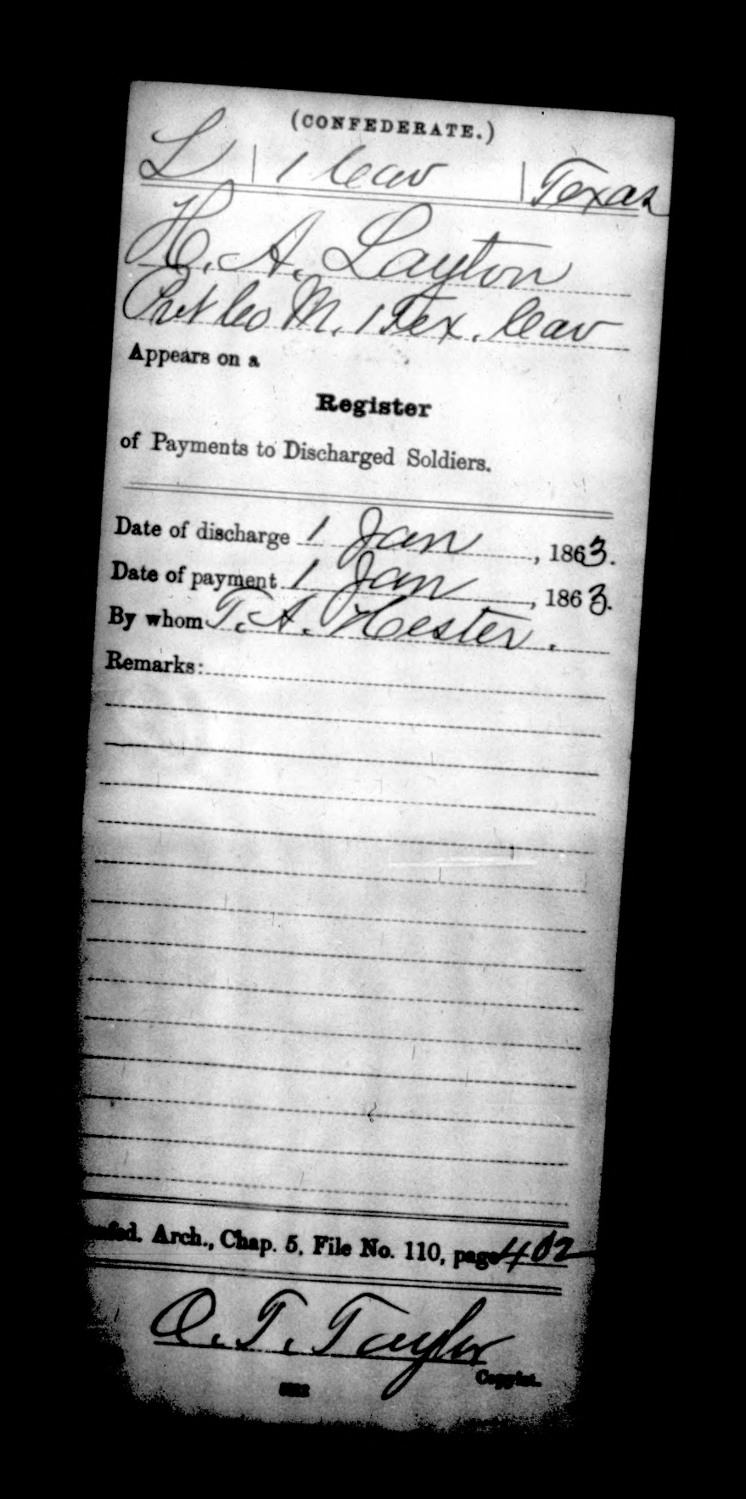 (CONFEDERATE.)
L | 1 Cav | Texas
H. A. Layton
Pvt Co M. 1 Tex. Cav
Appears on a
Register
of Payments to Discharged Soldiers.
Date of discharge 1 Jan, 1863.
Date of payment 1 Jan, 1863.
By whom T. A. Hester.
Remarks:
Arch., Chap. 5, File No. 110, page 402
O. T. Taylor
Copyist.